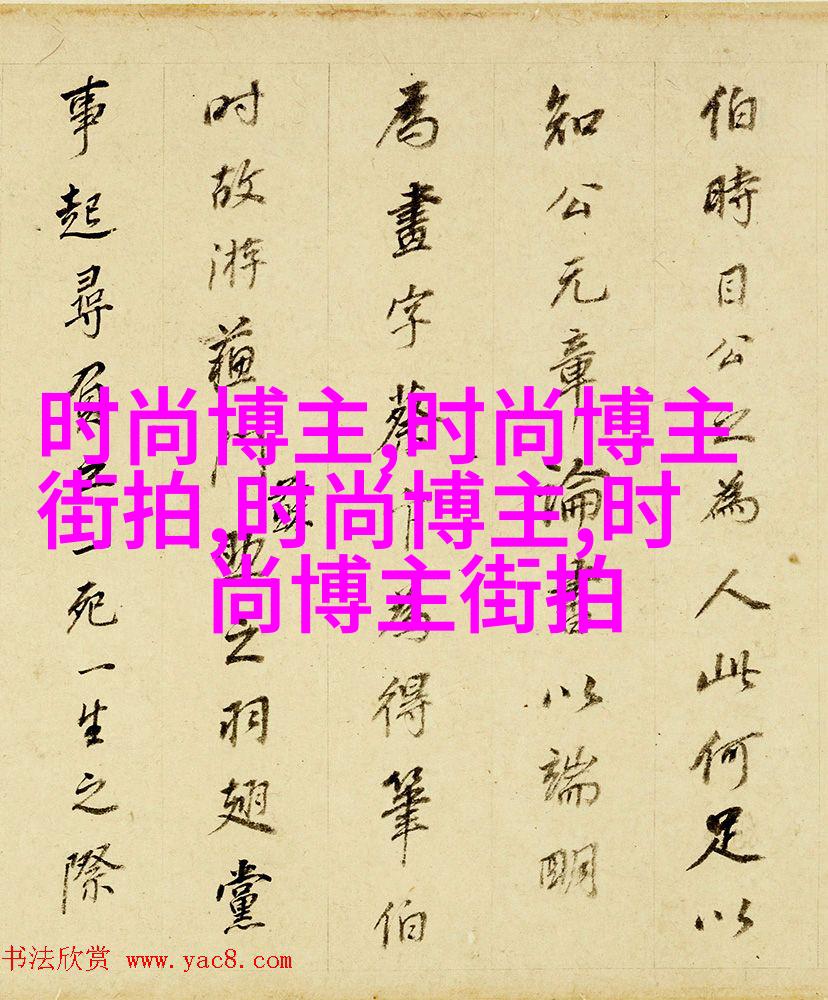 伯時目公之為人此何足以
知公元章論書以端明
為畫字蔡卞為得筆伯
时故游蘓門蘇助之羽翅黨
事起尋負一死一生之際
时尚博主,时尚博主
街拍,时尚博主,时
尚博主街拍
书法欣赏 www.yac8.com